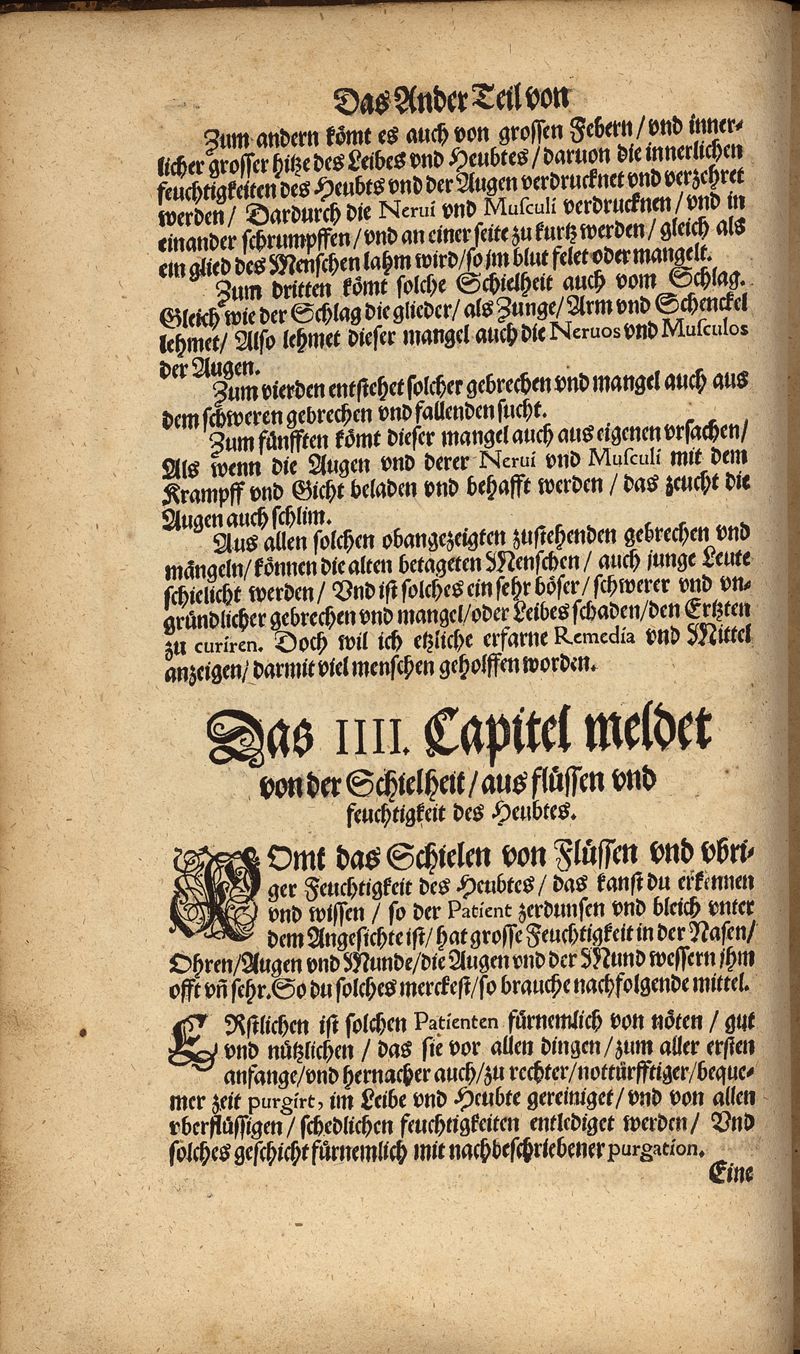 Das Ander Teil von
Zum andern kömt es auch von grossen Febern / vnd inner-
licher grosser hitze des Leibes vnd Heubtes / daruon die innerlichen
feuchtigkeiten des Heubts vnd der Augen verdrucknet vnd verzehret
werden / Dardurch die Nerui vnd Musculi verdrucknen / vnd in
einander schrumpffen / vnd an einer seite zu kurtz werden / gleich als
ein glied des Menschen lahm wird / so jm blut felet oder mangelt.
Zum dritten kömt solche Schielheit auch vom Schlag.
Gleich wie der Schlag die glieder / als Zunge / Arm vnd Schenckel
lehmet / Also lehmet dieser mangel auch die Neruos vnd Musculos
der Augen.
Zum vierden entstehet solcher gebrechen vnd mangel auch aus
dem schweren gebrechen vnd fallenden sucht.
Zum fünfften kömt dieser mangel auch aus eigenen vrsachen /
Als wenn die Augen vnd derer Nerui vnd Musculi mit dem
Krampff vnd Gicht beladen vnd behafft werden / das zeucht die
Augen auch schlim.
Aus allen solchen obangezeigten zustehenden gebrechen vnd
mängeln / können die alten betageten Menschen / auch junge Leute
schielicht werden / Vnd ist solches ein sehr böser / schwerer vnd vn-
gründlicher gebrechen vnd mangel / oder Leibes schaden / den Ertzten
zu curiren. Doch wil ich etzliche erfarne Remedia vnd Mittel
anzeigen / darmit viel menschen geholffen worden.
Das IIII. Capitel meldet
von der Schielheit / aus flüssen vnd
feuchtigkeit des Heubtes.
KOmt das Schielen von Flüssen vnd vbri-
ger Feuchtigkeit des Heubtes / das kanst du erkennen
vnd wissen / so der Patient zerdunsen vnd bleich vnter
dem Angesichte ist / hat grosse Feuchtigkeit in der Nasen /
Ohren / Augen vnd Munde / die Augen vnd der Mund wessern jhm
offt vñ sehr. So du solches merckest / so brauche nachfolgende mittel.
ERstlichen ist solchen Patienten fürnemlich von nöten / gut
vnd nützlichen / das sie vor allen dingen / zum aller ersten
anfange / vnd hernacher auch / zu rechter / nottürfftiger / beque-
mer zeit purgirt, im Leibe vnd Heubte gereiniget / vnd von allen
vberflüssigen / schedlichen feuchtigkeiten entlediget werden / Vnd
solches geschicht fürnemlich mit nachbeschriebener purgation.
Eine